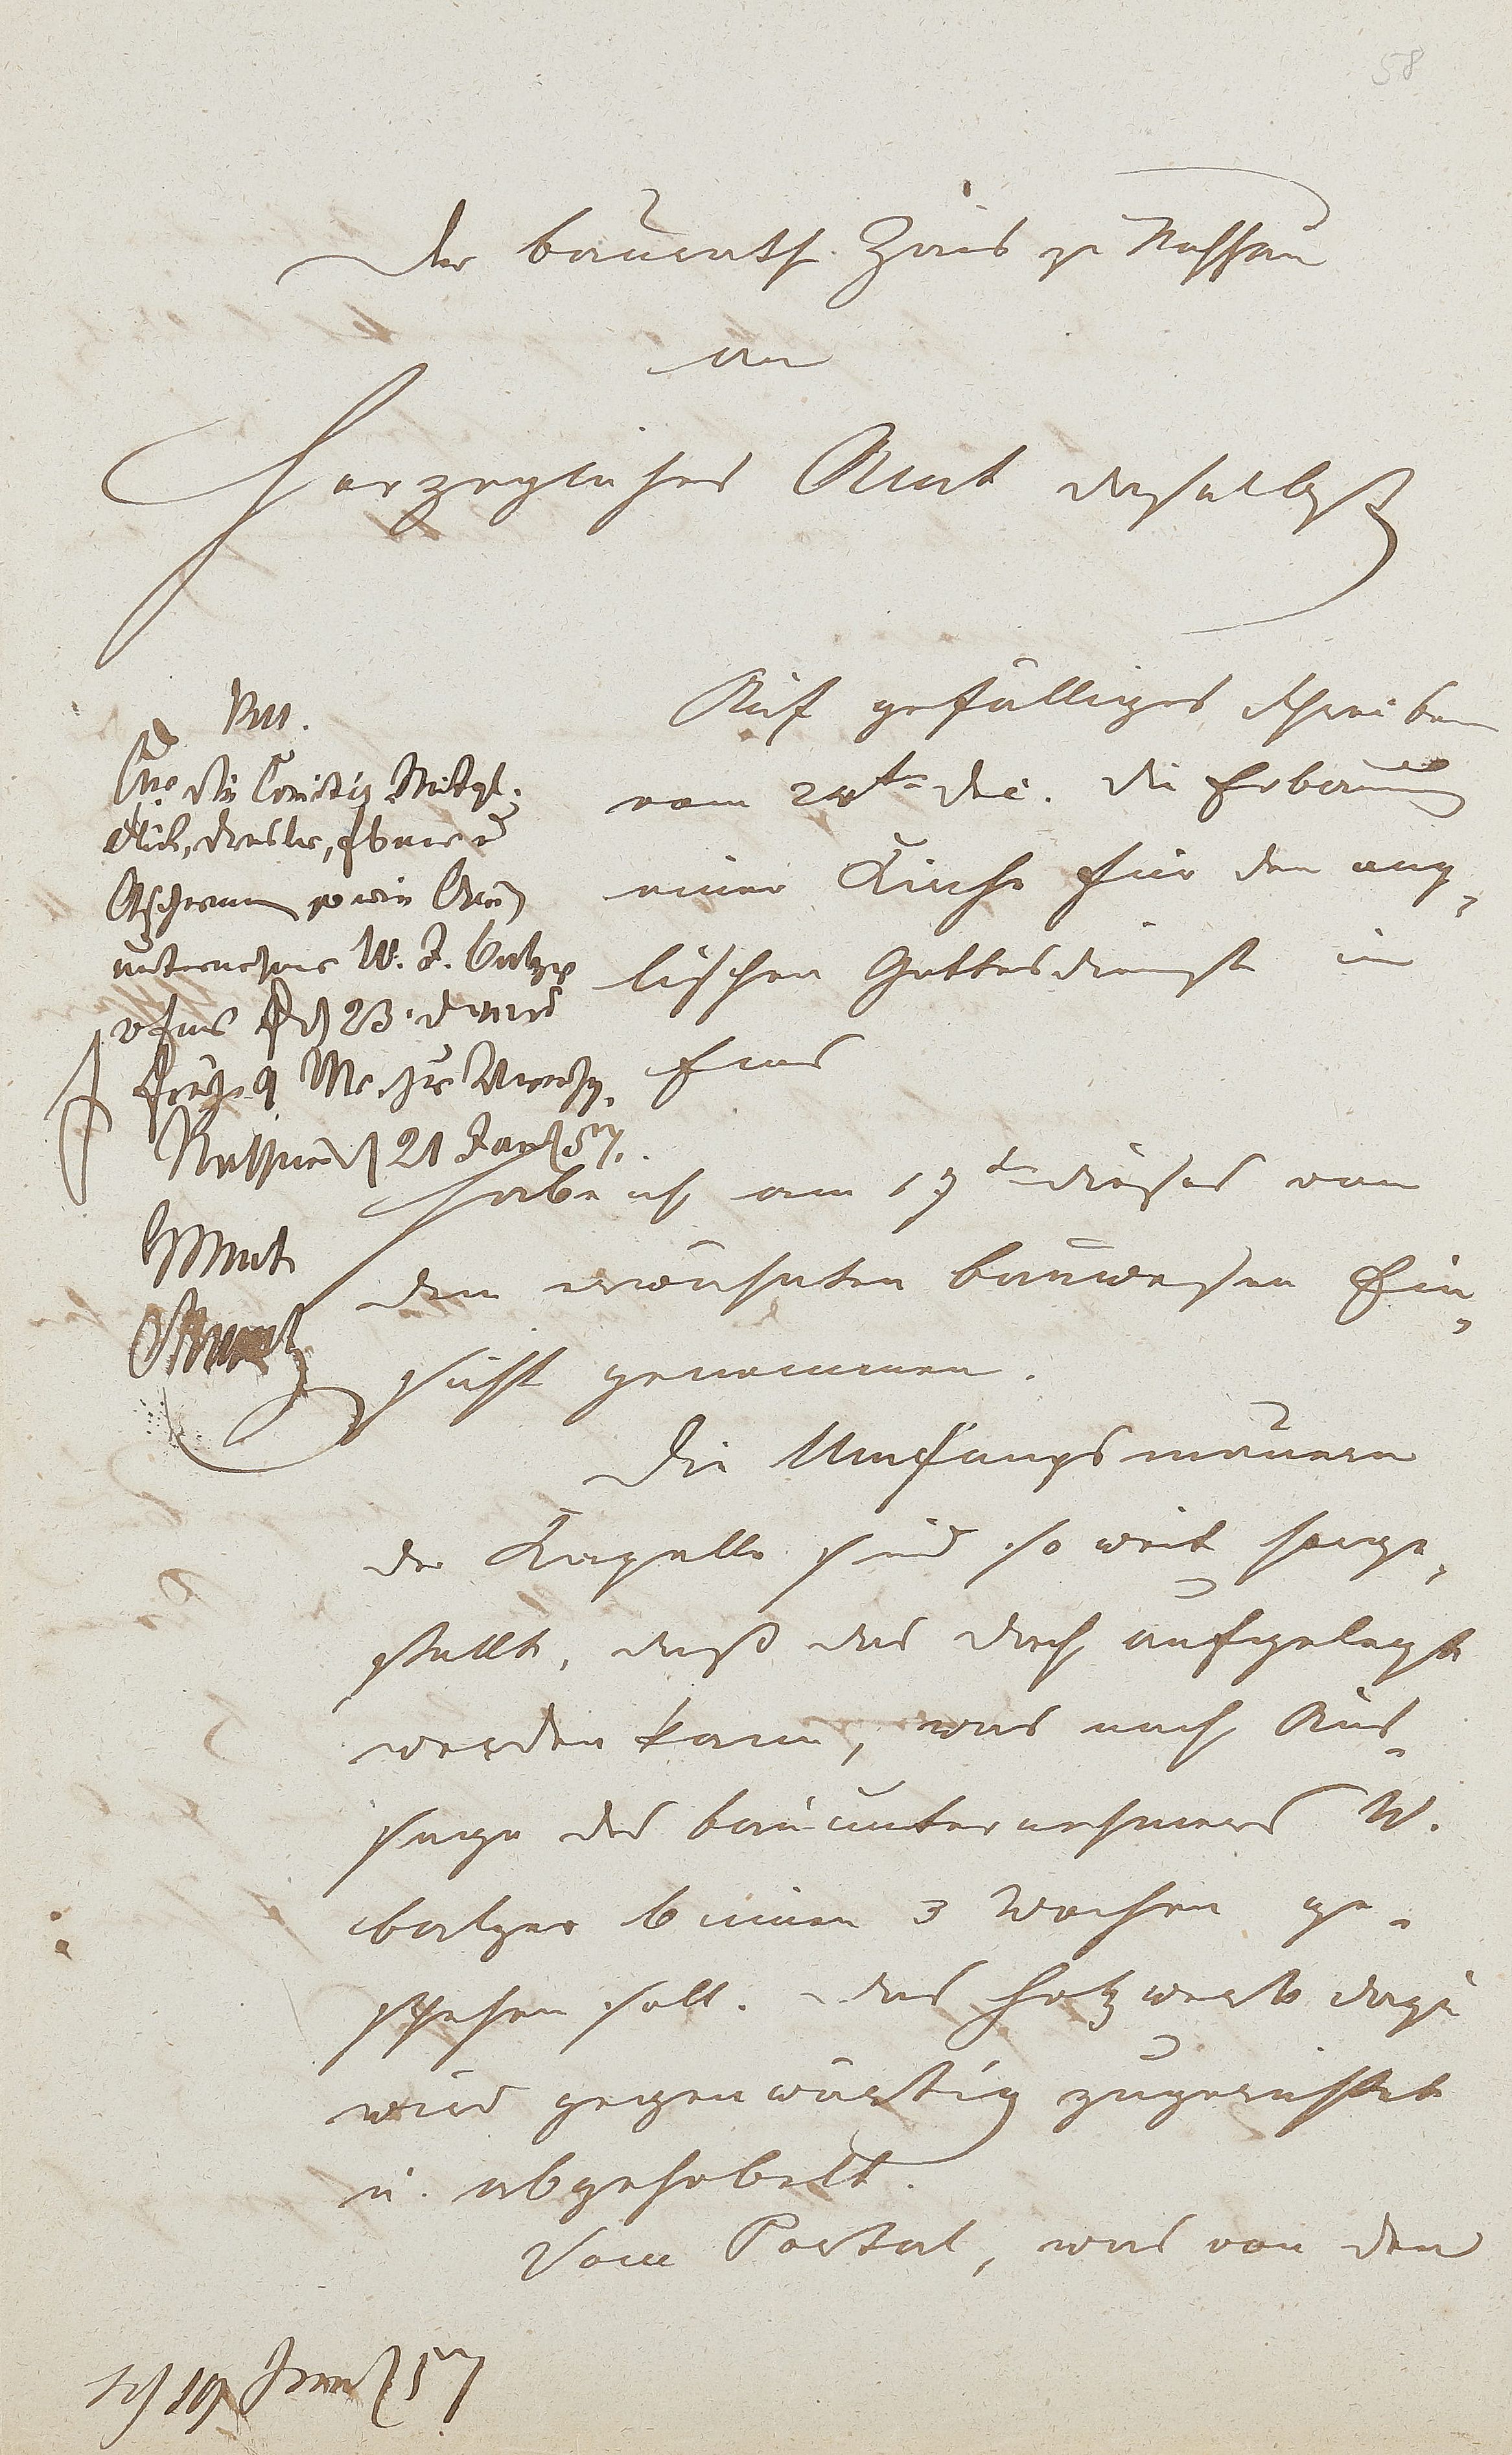 58
Der Baurath Zais zu Nassau
an
Herzogliches Amt daselbst
Auf gefälliges Schreiben
vom 24ten Dec. die Erbauung
einer Kirche für den eng,
lischen Gottesdienst in
Ems
habe ich am 17ten dieses von
dem erwähnten Bauwesen Ein,
sicht genommen.
Die Umfangsmauern
der Kapelle sind so weit herge,
stellt, daß das Dach aufgelegt
werden kann, was nach Aus-
sage des Bauunternehmers W.
Balzer binnen 3 Wochen ge-
schehen soll. Das Holzwerk dazu
wird gegenwärtig zugerichtet
u. abgehobelt.
Vom Portal, was von dem
die Comität Mitgl.
sowie Bau
unternehmer W. J. Balzer
v Ems 23.
früh 9 zur
Nassau d 21 Jan 57.
Amt
19 Jan 57